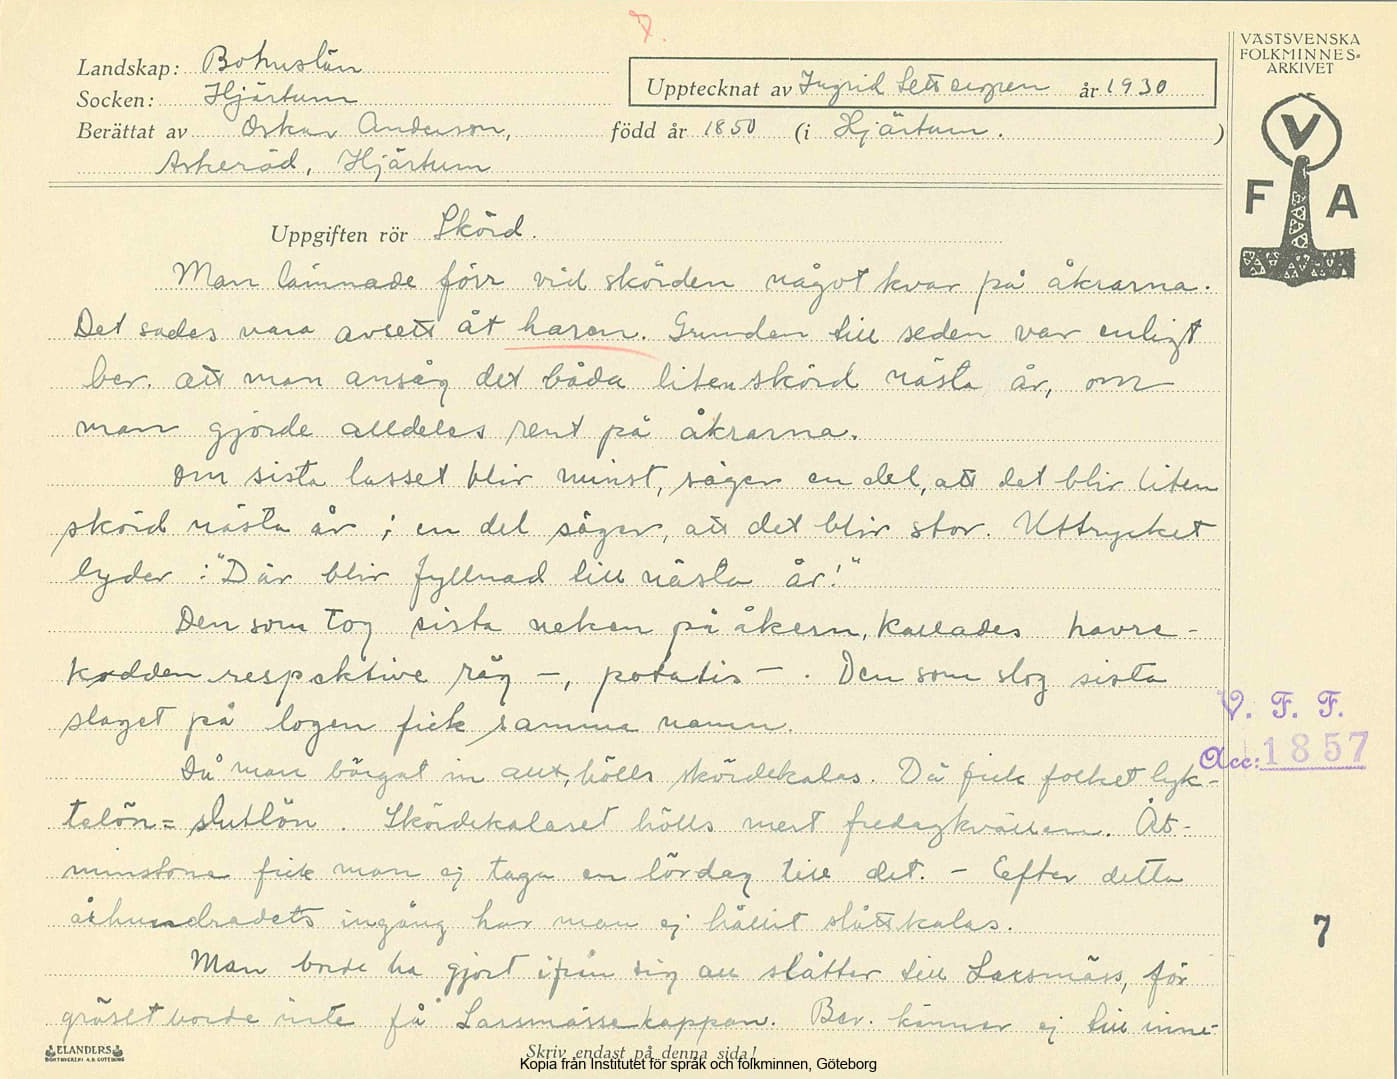 7.
Landskap: Bohuslän
Socken: Hjärtum
Upptecknat av Ingrid Settergren år 1930
Berättat av Oskar Anderson, född år 1850 (i Hjärtum. )
Askeröd, Hjärtum
VÄSTSVENSKA
FOLKMINNES-
ARKIVET
V
F A
Uppgiften rör Skörd.
Man lämnade förr vid skörden något kvar på åkrarna.
Det sades vara avsett åt haren. Grunden till seden var enligt
ber. att man ansåg det båda liten skörd nästa år, om
man gjorde alldeles rent på åkrarna.
Om sista lasset blir minst, säger en del, att det blir liten
skörd nästa år ; en del säger, att det blir stor. Uttrycket
lyder : "Där blir fyllnad till nästa år!"
Den som tog sista neken på åkern, kallades havre-
kodden respektive råg -, potatis - . Den som slog sista
slaget på logen fick samma namn.
V. F. F.
Acc: 1857
Då man bärgat in allt, hölls skördekalas. Då fick folket lyk-
telön = slutlön . Skördekalaset hölls mest fredagkvällen. Åt-
minstone fick man ej taga en lördag till det. - Efter detta
århundradets ingång har man ej hållit slåttkalas.
7
Man borde ha gjort ifrån sig all slåtter till Larsmäss, för
gräset borde inte få Larsmässekappan. Ber. känner ej till inne-
ELANDERS
BOKTRYCKERI A.B. GÖTEBORG
Skriv endast på denna sida!
Kopia från Institutet för språk och folkminnen, Göteborg